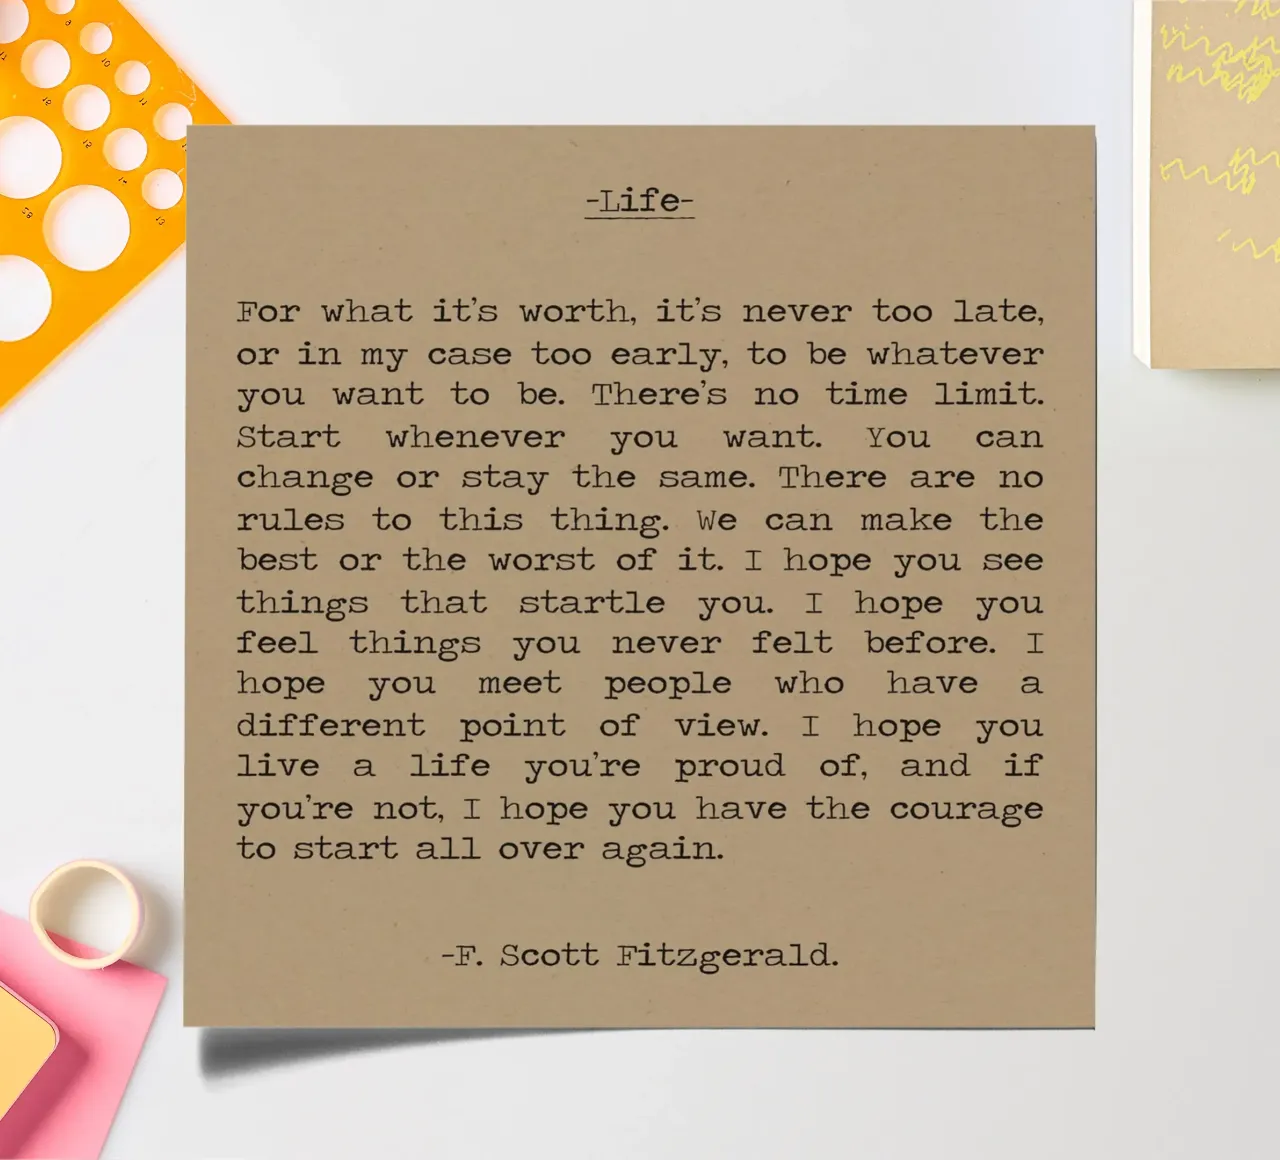 -Life-
For what it's worth, it's never too late,
or in my case too early, to be whatever
you want to be. There's no time limit.
Start whenever you want. You can
change or stay the same. There are no
rules to this thing. We can make the
best or the worst of it. I hope you see
things that startle you. I hope you
feel things you never felt before. I
hope you meet people who have a
different point of view. I hope you
live a life you're proud of, and if
you're not, I hope you have the courage
to start all over again.
-F. Scott Fitzgerald.